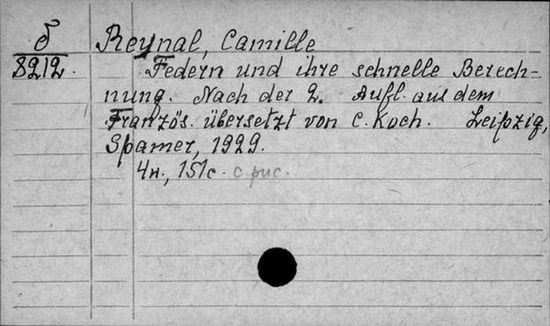 δ
8212.
Reynal, Camille
Federn und ihre schnelle Berech-
nung. Nach der 2. Aufl. aus dem
Französ. übersetzt von C. Koch. Leipzig,
Spamer, 1929.
4н., 151с. с рис.